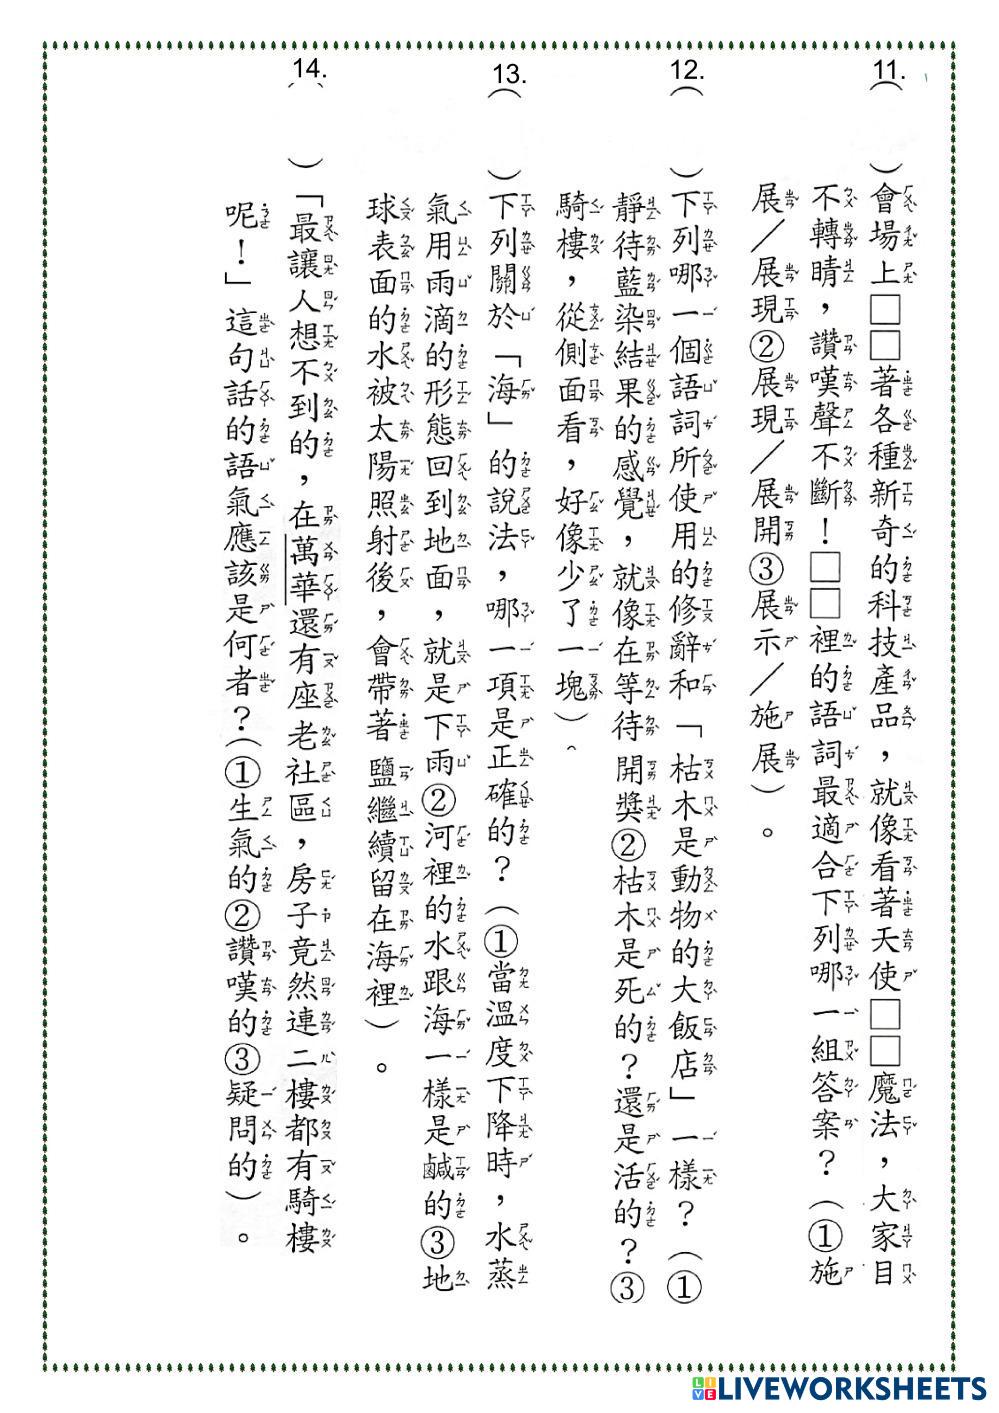 11.
(　)會場上□□著各種新奇的科技產品，就像看著天使□□魔法，大家目
不轉睛，讚嘆聲不斷！□□裡的語詞最適合下列哪一組答案？(①施
展／展現②展現／展開③展示／施展)。
12.
(　)下列哪一個語詞所使用的修辭和「枯木是動物的大飯店」一樣？(①
靜待藍染結果的感覺，就像在等待開獎②枯木是死的？還是活的？③
騎樓，從側面看，好像少了一塊)。
13.
(　)下列關於「海」的說法，哪一項是正確的？(①當溫度下降時，水蒸
氣用雨滴的形態回到地面，就是下雨②河裡的水跟海一樣是鹹的③地
球表面的水被太陽照射後，會帶著鹽繼續留在海裡)。
14.
(　)「最讓人想不到的，在萬華還有座老社區，房子竟然連二樓都有騎樓
呢！」這句話的語氣應該是何者？(①生氣的②讚嘆的③疑問的)。
LIVEWORKSHEETS